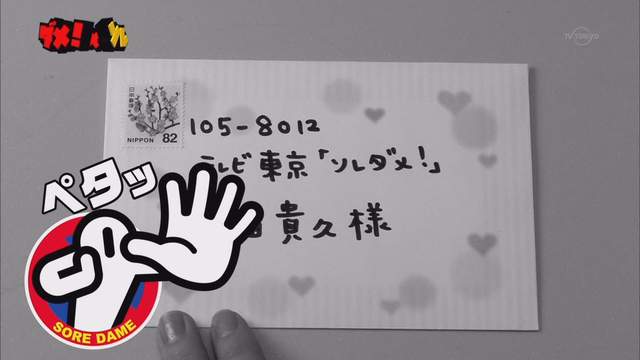 TV TOKYO
日本郵便
NIPPON 82
105-8012
テレビ東京「ソレダメ!」
貴久様
ペタッ
SORE DAME